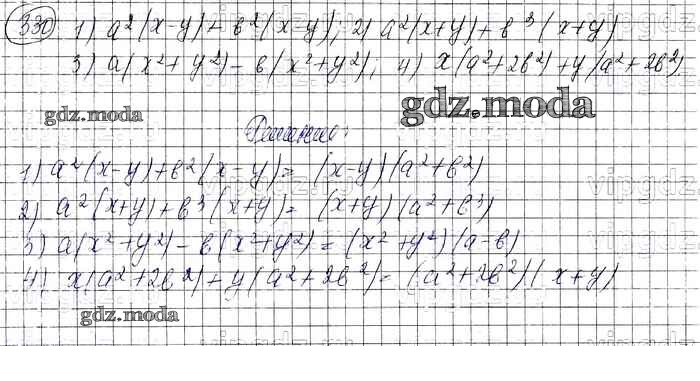 330 1) a²(x-y)+в²(x-y); 2) a²(x+y)+в³(x+y)
3) a(x²+y²)-в(x²+y²); 4) x(a²+2в²)+y(a²+2в²)
gdz.moda
gdz.moda
Решение:
1) a²(x-y)+в²(x-y)= (x-y)(a²+в²)
2) a²(x+y)+в³(x+y)= (x+y)(a²+в³)
3) a(x²+y²)-в(x²+y²)=(x²+y²)(a-в)
4) x(a²+2в²)+y(a²+2в²)= (a²+2в²)(x+y)
gdz.moda